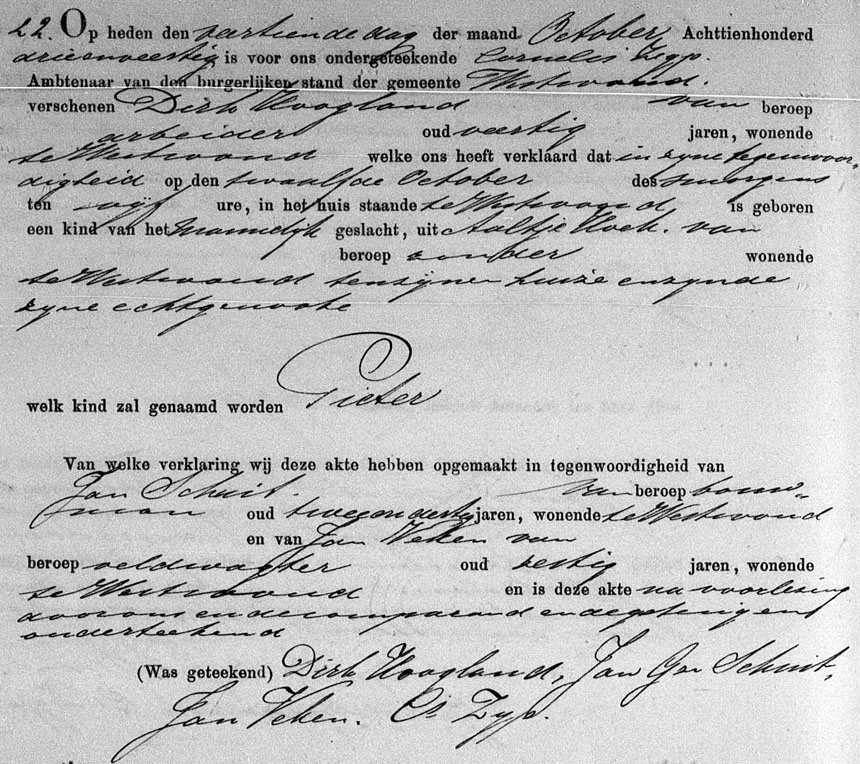 22. Op heden den dertiende dag der maand October, Achttienhonderd
drieenveertig is voor ons ondergeteekende Cornelis Zyp.
Ambtenaar van den burgerlijken stand der gemeente Westwoud.
verschenen Dirk Hoogland van beroep
arbeider oud veertig jaren, wonende
te Westwoud welke ons heeft verklaard dat in zyne tegenwoor-
digheid op den twaalfde October des smorgens
ten vijf ure, in het huis staande te Westwoud is geboren
een kind van het mannelijk geslacht, uit Aaltje Hoek. van
beroep zonder wonende
te Westwoud tenzijner huize en zynde
zyne echtgenoote
welk kind zal genaamd worden Pieter
Van welke verklaring wij deze akte hebben opgemaakt in tegenwoordigheid van
Jan Schuit. van beroep bouw-
man oud tweeendertig jaren, wonende te Westwoud
en van Jan Veken van
beroep veldwagter oud zestig jaren, wonende
te Westwoud en is deze akte na voorlezing
door ons en de comparand en de getuigens
onderteekend
(Was geteekend) Dirk Hoogland, Jan Gz Schuit,
Jan Veken. Cs Zyp.